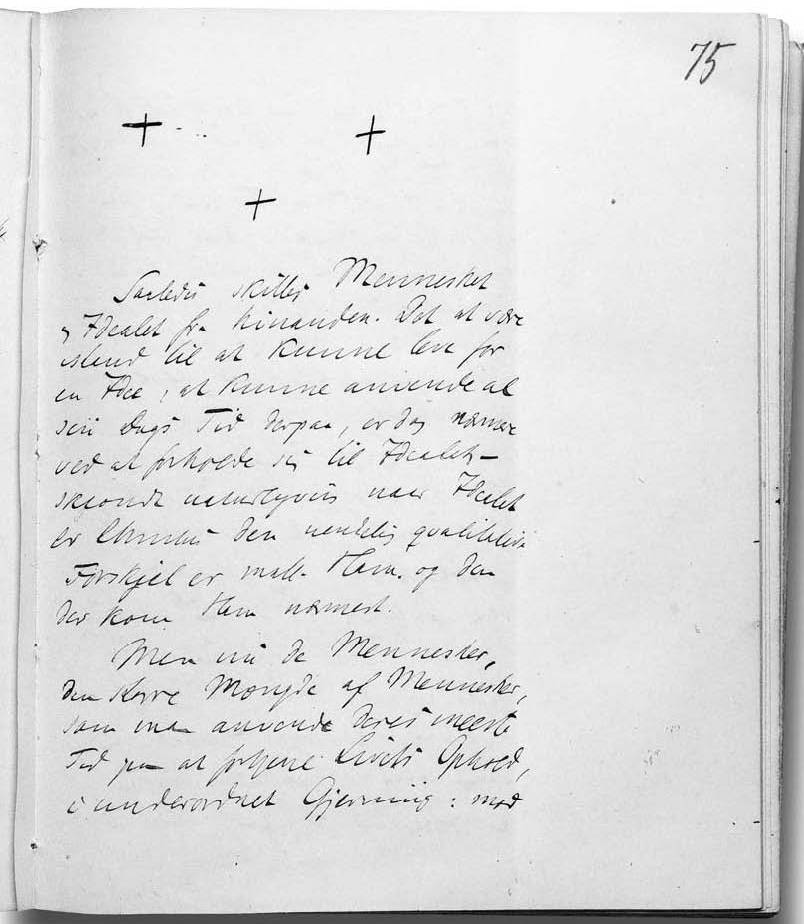 75
+ +
+
Saaledes skilles Mennesket
og Idealet fra hinanden. Det at være
istand til at kunne leve for
en Idee, at kunne anvende al
sin Dags Tid derpaa, er dog nærmere
ved at forholde sig til Idealet –
skjøndt naturligviis naar Idealet
er Christus den uendelig qvalitative
Forskjel er mell. Ham. og den
der kom Ham nærmest.
Men nu de Mennesker,
den større Mængde af Mennesker,
som maa anvende deres meeste
Tid paa at fortjene Livets Ophold,
i underordnet Gjerning: mod